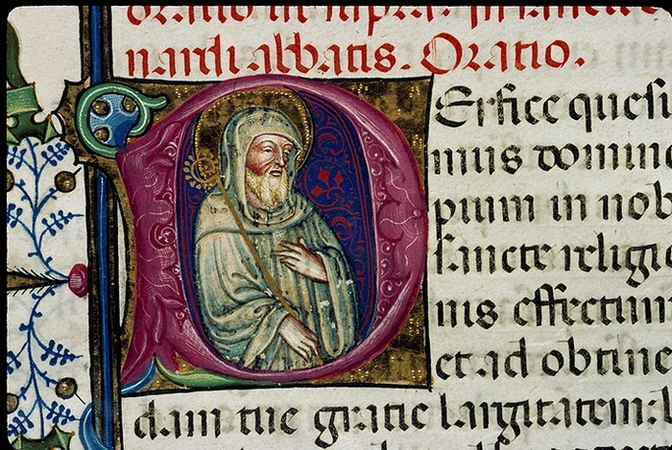 nardi abbatis. Oratio.
PErfice quesu
mus domine
pium in nob
sancte religio
nis effectum
et ad obtine
dam tue gratie largitatem